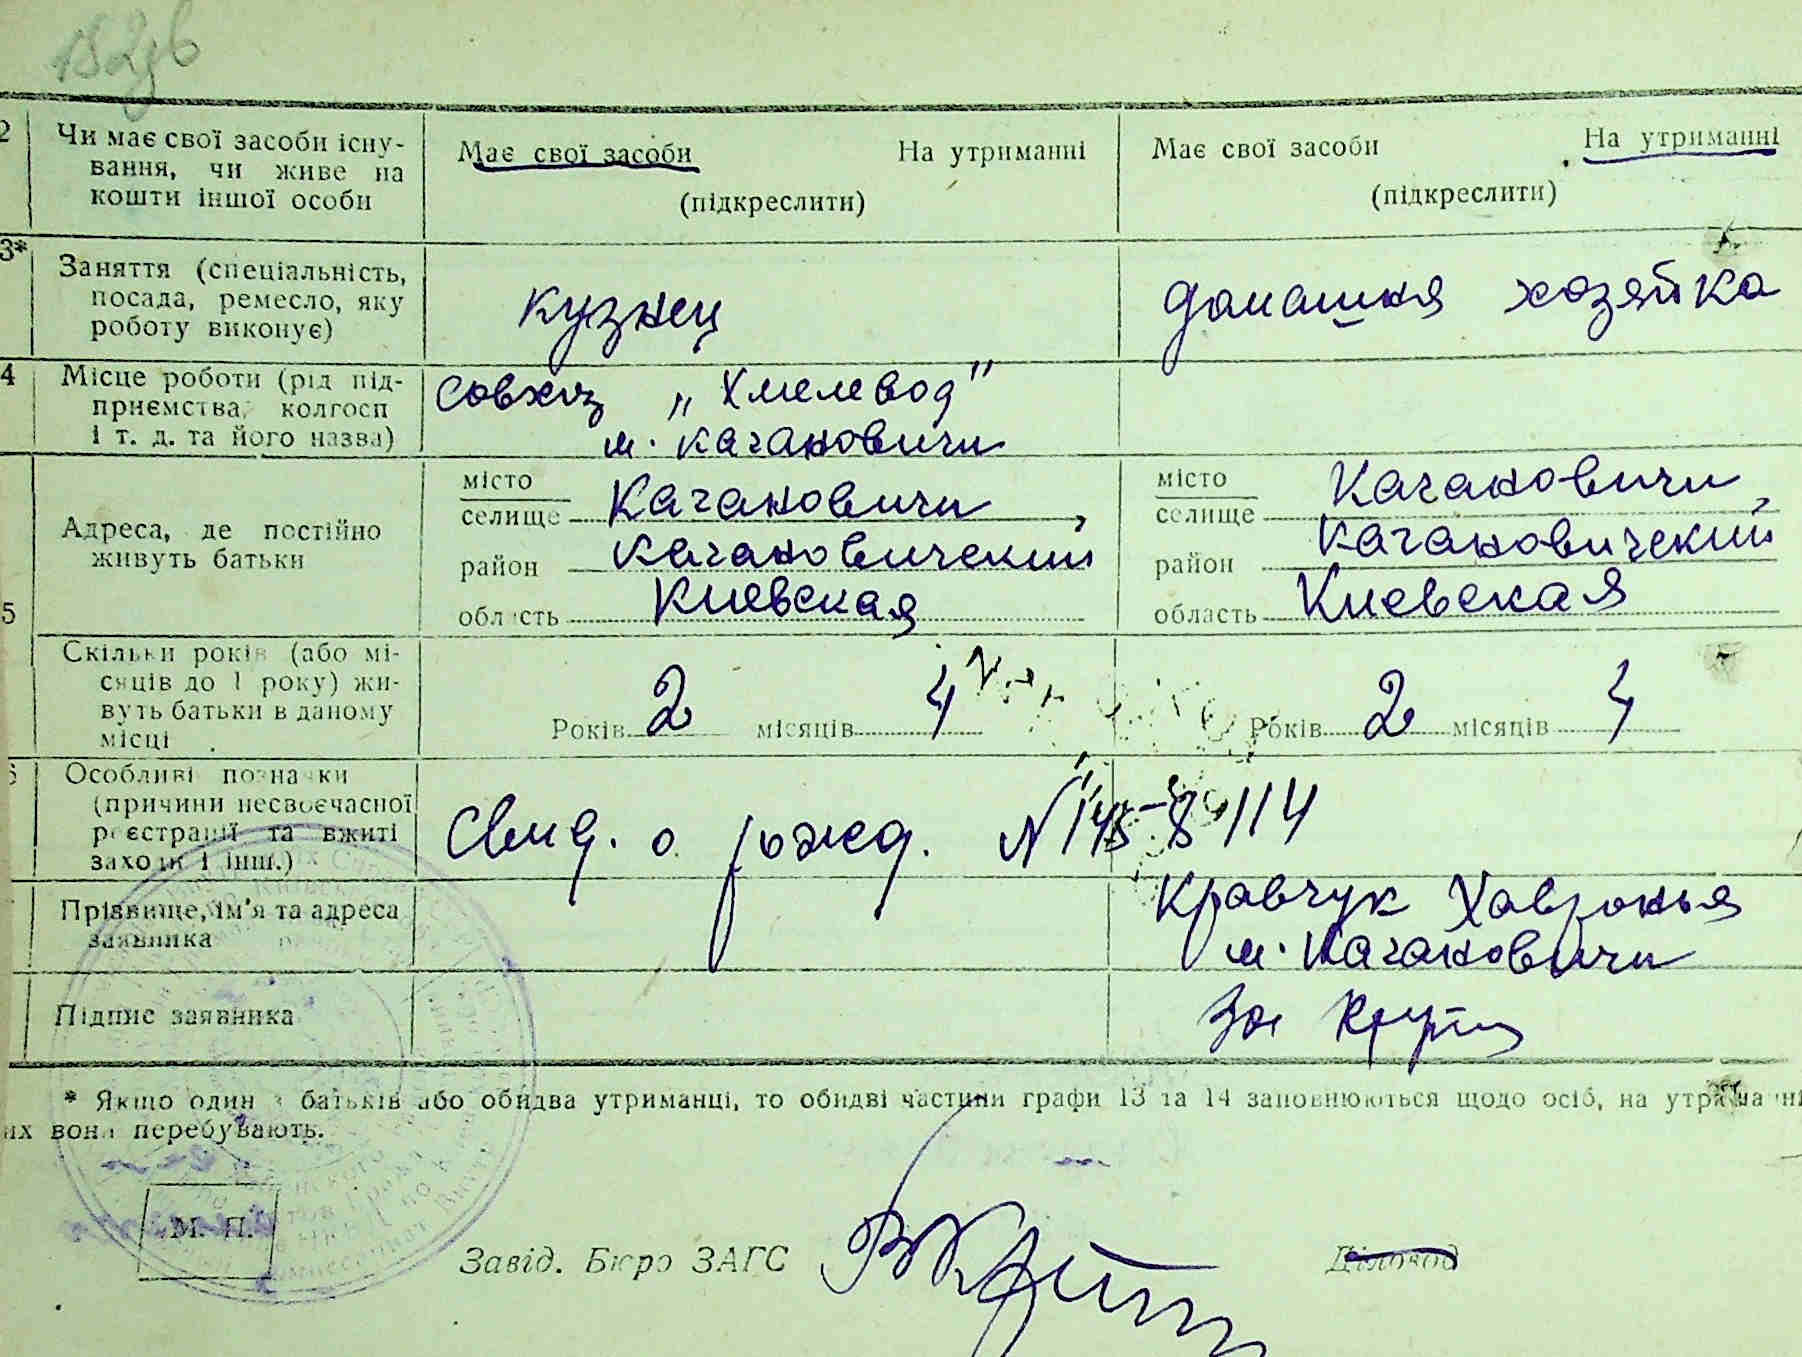 2 Чи має свої засоби існу- Має свої засоби На утриманні Має свої засоби На утриманні
вання, чи живе на
кошти іншої особи (підкреслити) (підкреслити)
3* Заняття (спеціальність,
посада, ремесло, яку кузнец домашня хозяйка
роботу виконує)
4 Місце роботи (рід під- совхоз „Хмелевод"
приємства, колгосп
і т. д. та його назва) м. Каганович
місто Кагановичи місто Кагановичи
селище , селище ,
Адреса, де постійно
живуть батьки район Кагановичский район Кагановичский
5 область Киевская область Киевская
Скільки років (або мі-
сяців до 1 року) жи-
вуть батьки в даному Років 2 місяців 4 Років 2 місяців 4
місці
Особливі позначки
(причини несвоєчасної
реєстрації та вжиті Свид. о рожд. №
заходи і інш.)
Прізвище, ім'я та адреса Кравчук Хавронья
заявника м. Кагановичи
Підпис заявника За
* Якщо один з батьків або обидва утриманці, то обидві частини графи 13 та 14 заповнюються щодо осіб, на утриманні
их вони перебувають.
М. П.
Завід. Бюро ЗАГС Діловод